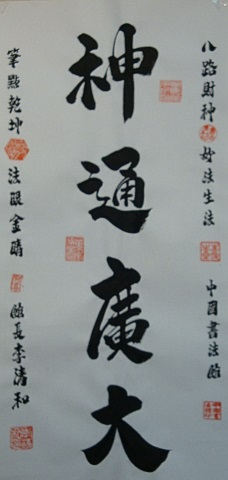 八路財神 妙法生法 中國書法館
神通廣大
筆點乾坤 法眼金睛 館長李清和